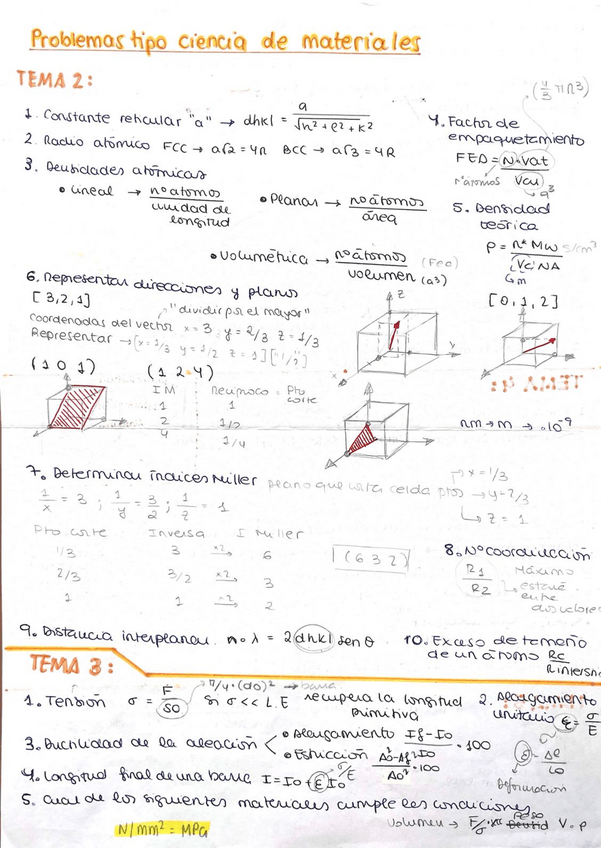 Problemas tipo ciencia de materiales
TEMA 2:
1. Constante reticular "a" → dhkl = a / √h² + l² + k²
2. Radio atómico FCC → a√2 = 4R BCC → a√3 = 4R
3. Densidades atómicas
• Lineal → nº átomos / unidad de longitud
• Planar → nº átomos / área
• Volumétrica → nº átomos / volumen (a³)
4. Factor de empaquetamiento
(4/3 π R³)
FED = N·Vat / Vcu
nº átomos
a³
5. Densidad teórica
ρ = nº Mw / Vc NA
6. Representar direcciones y planos
[3,2,1]
"dividir por el mayor"
coordenadas del vector x = 3 y = 2/3 z = 1/3
Representar → [x = 1/3 y = 1/2 z = 1]
z
y
x
[0,1,2]
(1 0 1)
(1 2 4)
IM Recíproco Pto corte
1 1
2 1/2
4 1/4
TEMA 4:
nm → m → ·10⁻⁹
7. Determinar índices Miller plano que corta celda ptos → x = 1/3
→ y = 2/3
→ z = 1
1/x = 3 ; 1/y = 3/2 ; 1/z = 1
Pto corte Inversa I Miller
1/3 3 ×2→ 6
2/3 3/2 ×2→ 3
1 1 ×2→ 2
(6 3 2)
8. Nº coordinación
R1 / R2
9. Distancia interplanar. n·λ = 2 dhkl sen θ
10. Exceso de tamaño de un átomo Rc /
TEMA 3:
1. Tensión σ = F / S0
π/4·(do)² → barra
Si σ << L.E recupera la longitud primitiva
2. Alargamiento unitario ε = σ / E
ε = Δl / lo
Deformación
3. Ductilidad de la aleación
• Alargamiento If - Io / Io · 100
• Estricción Ao² - Af² / Ao² · 100
4. Longitud final de una barra I = Io + ε Io
σ/E
5. Cual de los siguientes materiales cumple las condiciones
N/mm² = MPa
Volumen → F/σ · Peso V·ρ